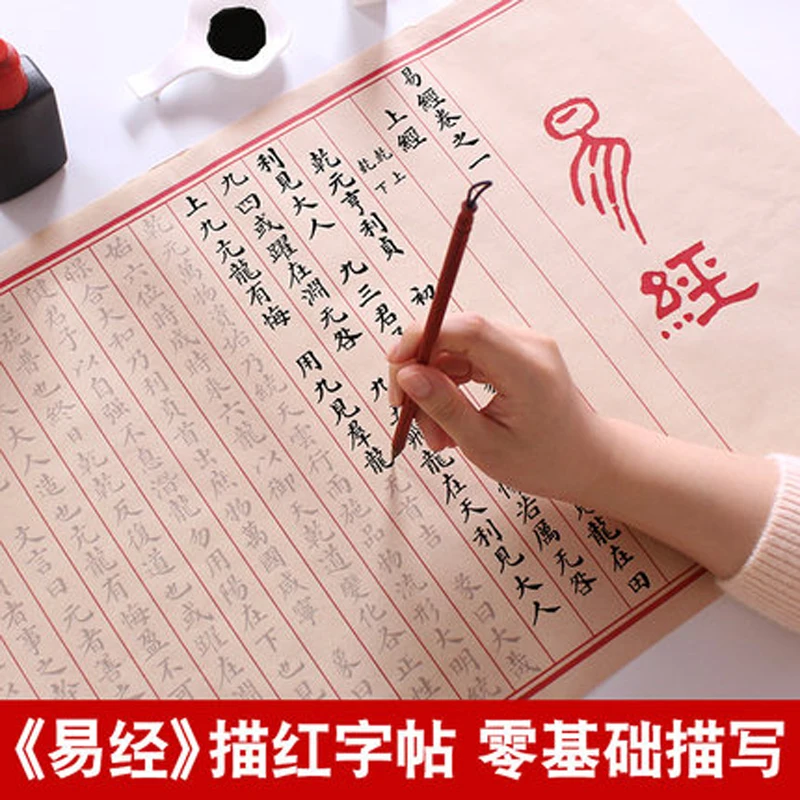 易經
易經卷之一
上經
乾下
乾上
乾元亨利貞 初
見龍在田
利見大人 九三君
若厲无咎
九四或躍在淵无咎 九
龍在天利見大人
上九亢龍有悔 用九見羣龍
首吉 彖曰大哉
乾元萬物資始乃統天雲行雨施品物流形大明
始六位時成時乘六龍以御天乾道變化各正性
保合大和乃利貞首出庶物萬國咸寧 象曰
健君子以自強不息潛龍勿用陽在下也見
施普也終日乾乾反復道也或躍在淵
大人造也亢龍有悔盈不可
文言曰元者善之
者事之幹
《易经》描红字帖 零基础描写